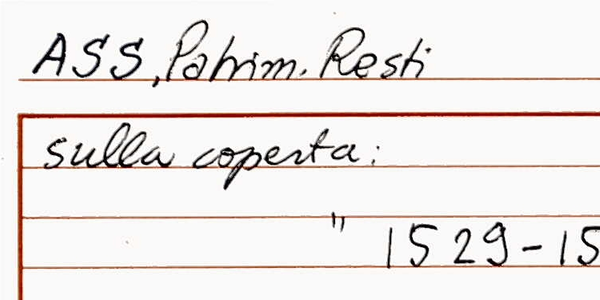 ASS, Patrim. Resti
sulla coperta:
" 1529-15